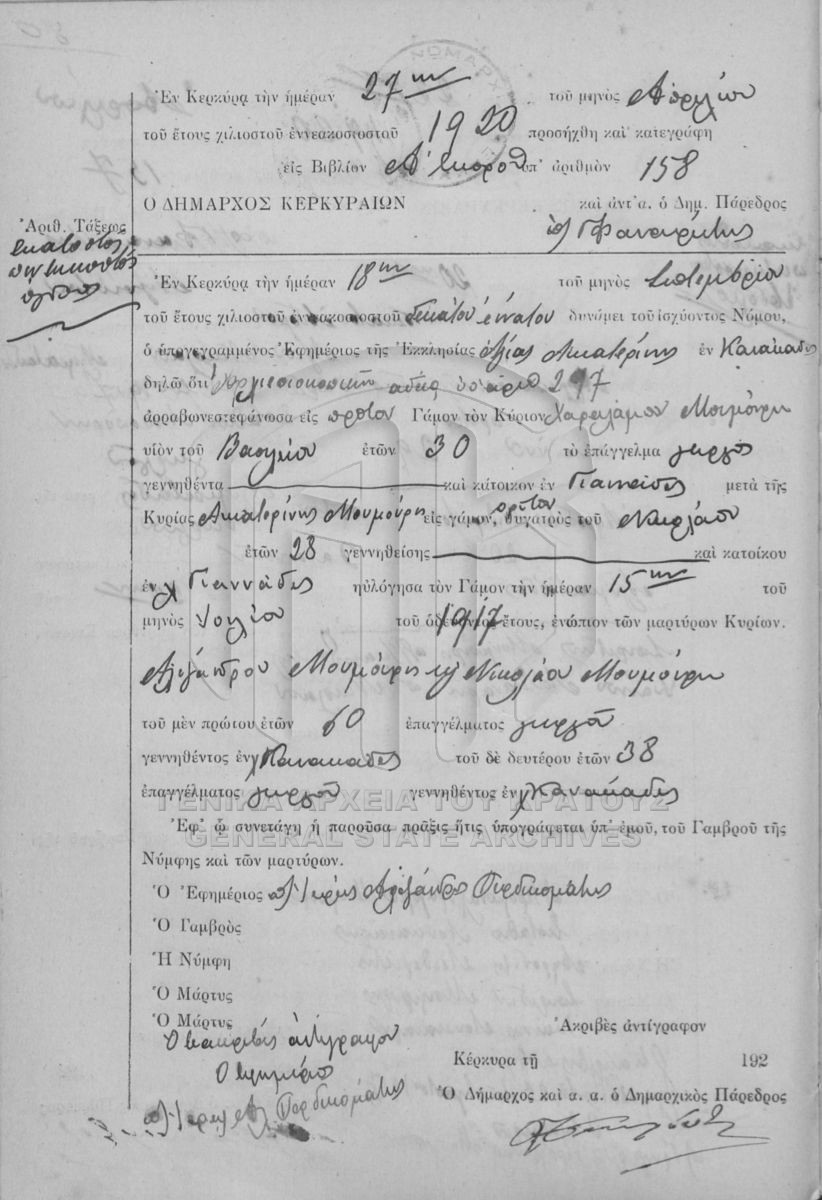 Ἐν Κερκύρᾳ τὴν ἡμέραν 27ην τοῦ μηνὸς Ἀπριλίου
τοῦ ἔτους χιλιοστοῦ ἐννεακοσιοστοῦ 1920 προσήχθη καὶ κατεγράφη
εἰς Βιβλίον Α΄ ὑπ' ἀριθμὸν 158
Ο ΔΗΜΑΡΧΟΣ ΚΕΡΚΥΡΑΙΩΝ καὶ ἀντ' α. ὁ Δημ. Πάρεδρος
Ἀριθ. Τάξεως
ἑκατοστὸς
πεντηκοστὸς
ὄγδοος
Ἐν Κερκύρᾳ τὴν ἡμέραν 18ην τοῦ μηνὸς Σεπτεμβρίου
τοῦ ἔτους χιλιοστοῦ ἐννεακοσιοστοῦ δεκάτου ἐνάτου δυνάμει τοῦ ἰσχύοντος Νόμου,
ὁ ὑπογεγραμμένος Ἐφημέριος τῆς Ἐκκλησίας Ἁγίας Αικατερίνης ἐν Κανακάδες
δηλῶ ὅτι Ἀρχιεπισκοπικῇ αδείᾳ ὑπ' αριθ 297
ἀρραβωνεστεφάνωσα εἰς πρῶτον Γάμον τὸν Κύριον Χαράλαμπον Μουμούρη
υἱὸν τοῦ Βασιλείου ἐτῶν 30 τὸ ἐπάγγελμα γεωργὸς
γεννηθέντα καὶ κάτοικον ἐν Γιαννάδες μετὰ τῆς
Κυρίας Αικατερίνης Μουμούρη εἰς γάμον, πρῶτον θυγατρὸς τοῦ Νικολάου
ἐτῶν 28 γεννηθείσης καὶ κατοίκου
ἐν Γιαννάδες ηὐλόγησα τὸν Γάμον τὴν ἡμέραν 15ην τοῦ
μηνὸς Ἰουλίου τοῦ 1917 ἔτους, ἐνώπιον τῶν μαρτύρων Κυρίων.
Αλεξάνδρου Μουμούρη καὶ Νικολάου Μουμούρη
τοῦ μὲν πρώτου ἐτῶν 60 ἐπαγγέλματος γεωργοῦ
γεννηθέντος ἐν Κανακάδες τοῦ δὲ δευτέρου ἐτῶν 38
ἐπαγγέλματος γεωργοῦ γεννηθέντος ἐν Κανακάδες
ΓΕΝΙΚΑ ΑΡΧΕΙΑ ΤΟΥ ΚΡΑΤΟΥΣ
Ἐφ' ᾧ συνετάγη ἡ παροῦσα πρᾶξις ἥτις ὑπογράφεται ὑπ' ἐμοῦ, τοῦ Γαμβροῦ τῆς
GENERAL STATE ARCHIVES
Νύμφης καὶ τῶν μαρτύρων.
Ὁ Ἐφημέριος Ἱερεὺς Αλέξανδρος Περδικομάτης
Ὁ Γαμβρὸς
Ἡ Νύμφη
Ὁ Μάρτυς
Ὁ Μάρτυς
Ἀκριβὲς ἀντίγραφον
ἀντίγραφον
Κέρκυρα τῇ 192
Ὁ Ἐφημέριος
Ὁ Δήμαρχος καὶ α. α. ὁ Δημαρχικὸς Πάρεδρος
Ἱερεὺς Αλ Περδικομάτης